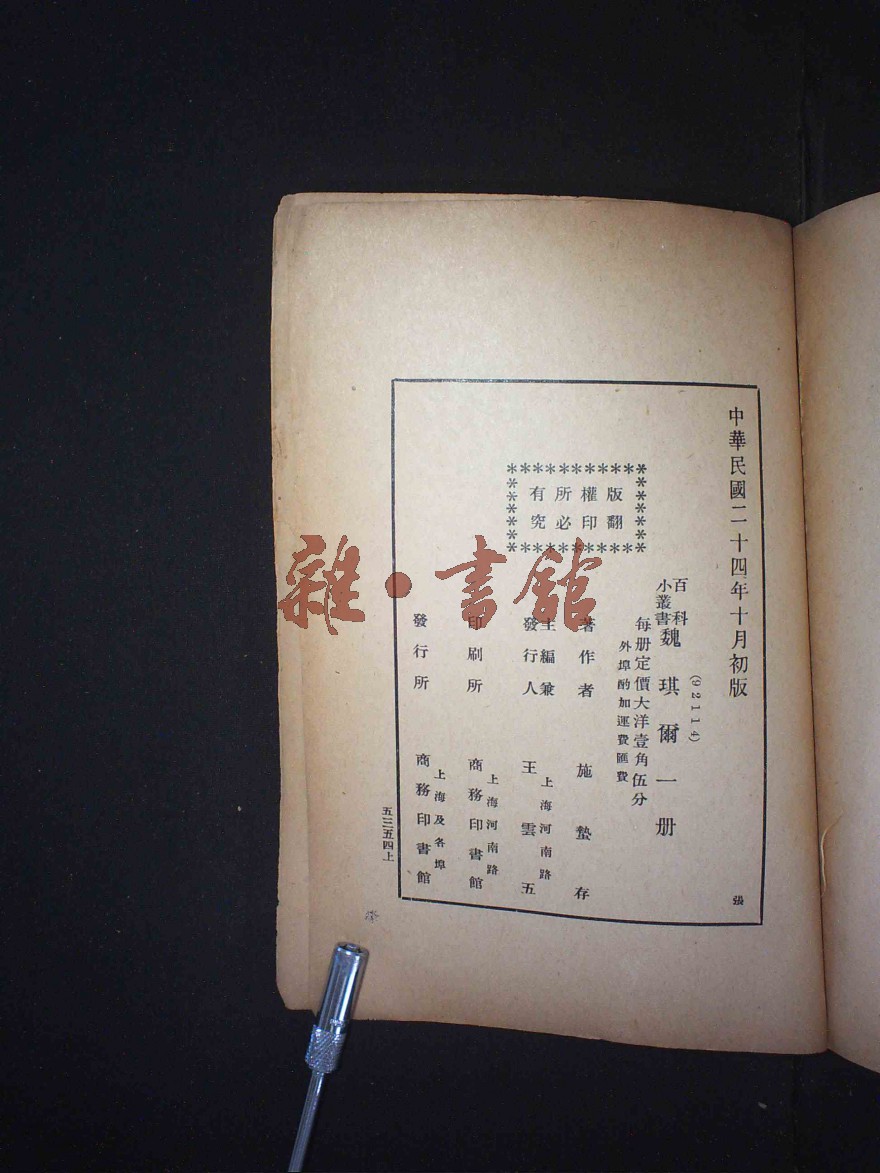 中華民國二十四年十月初版
張
(92114)
百科
小叢書
魏琪爾一册
每册定價大洋壹角伍分
外埠酌加運費匯費
版權所有
翻印必究
著作者 施蟄存
主編兼
發行人
王雲五
上海河南路
印刷所
商務印書館
上海河南路
發行所
商務印書館
上海及各埠
五三五四上
雜·書館